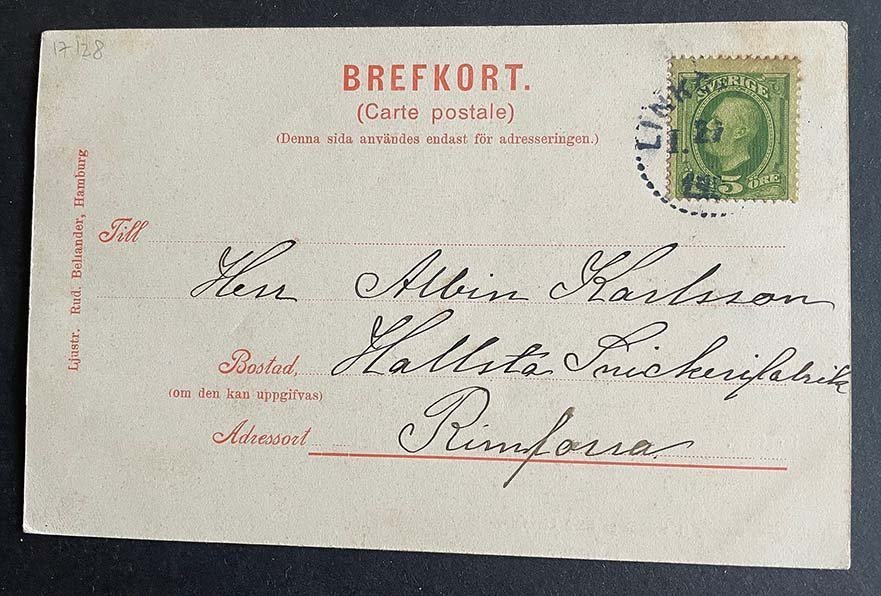 17/28
BREFKORT.
(Carte postale)
(Denna sida användes endast för adresseringen.)
SVERIGE
5 ÖRE
LINKÖ
27
Ljustr. Rud. Beliander, Hamburg
Till
Herr Albin Karlsson
Bostad, Hallsta Snickerifabrik
(om den kan uppgifvas)
Adressort Rimforsa